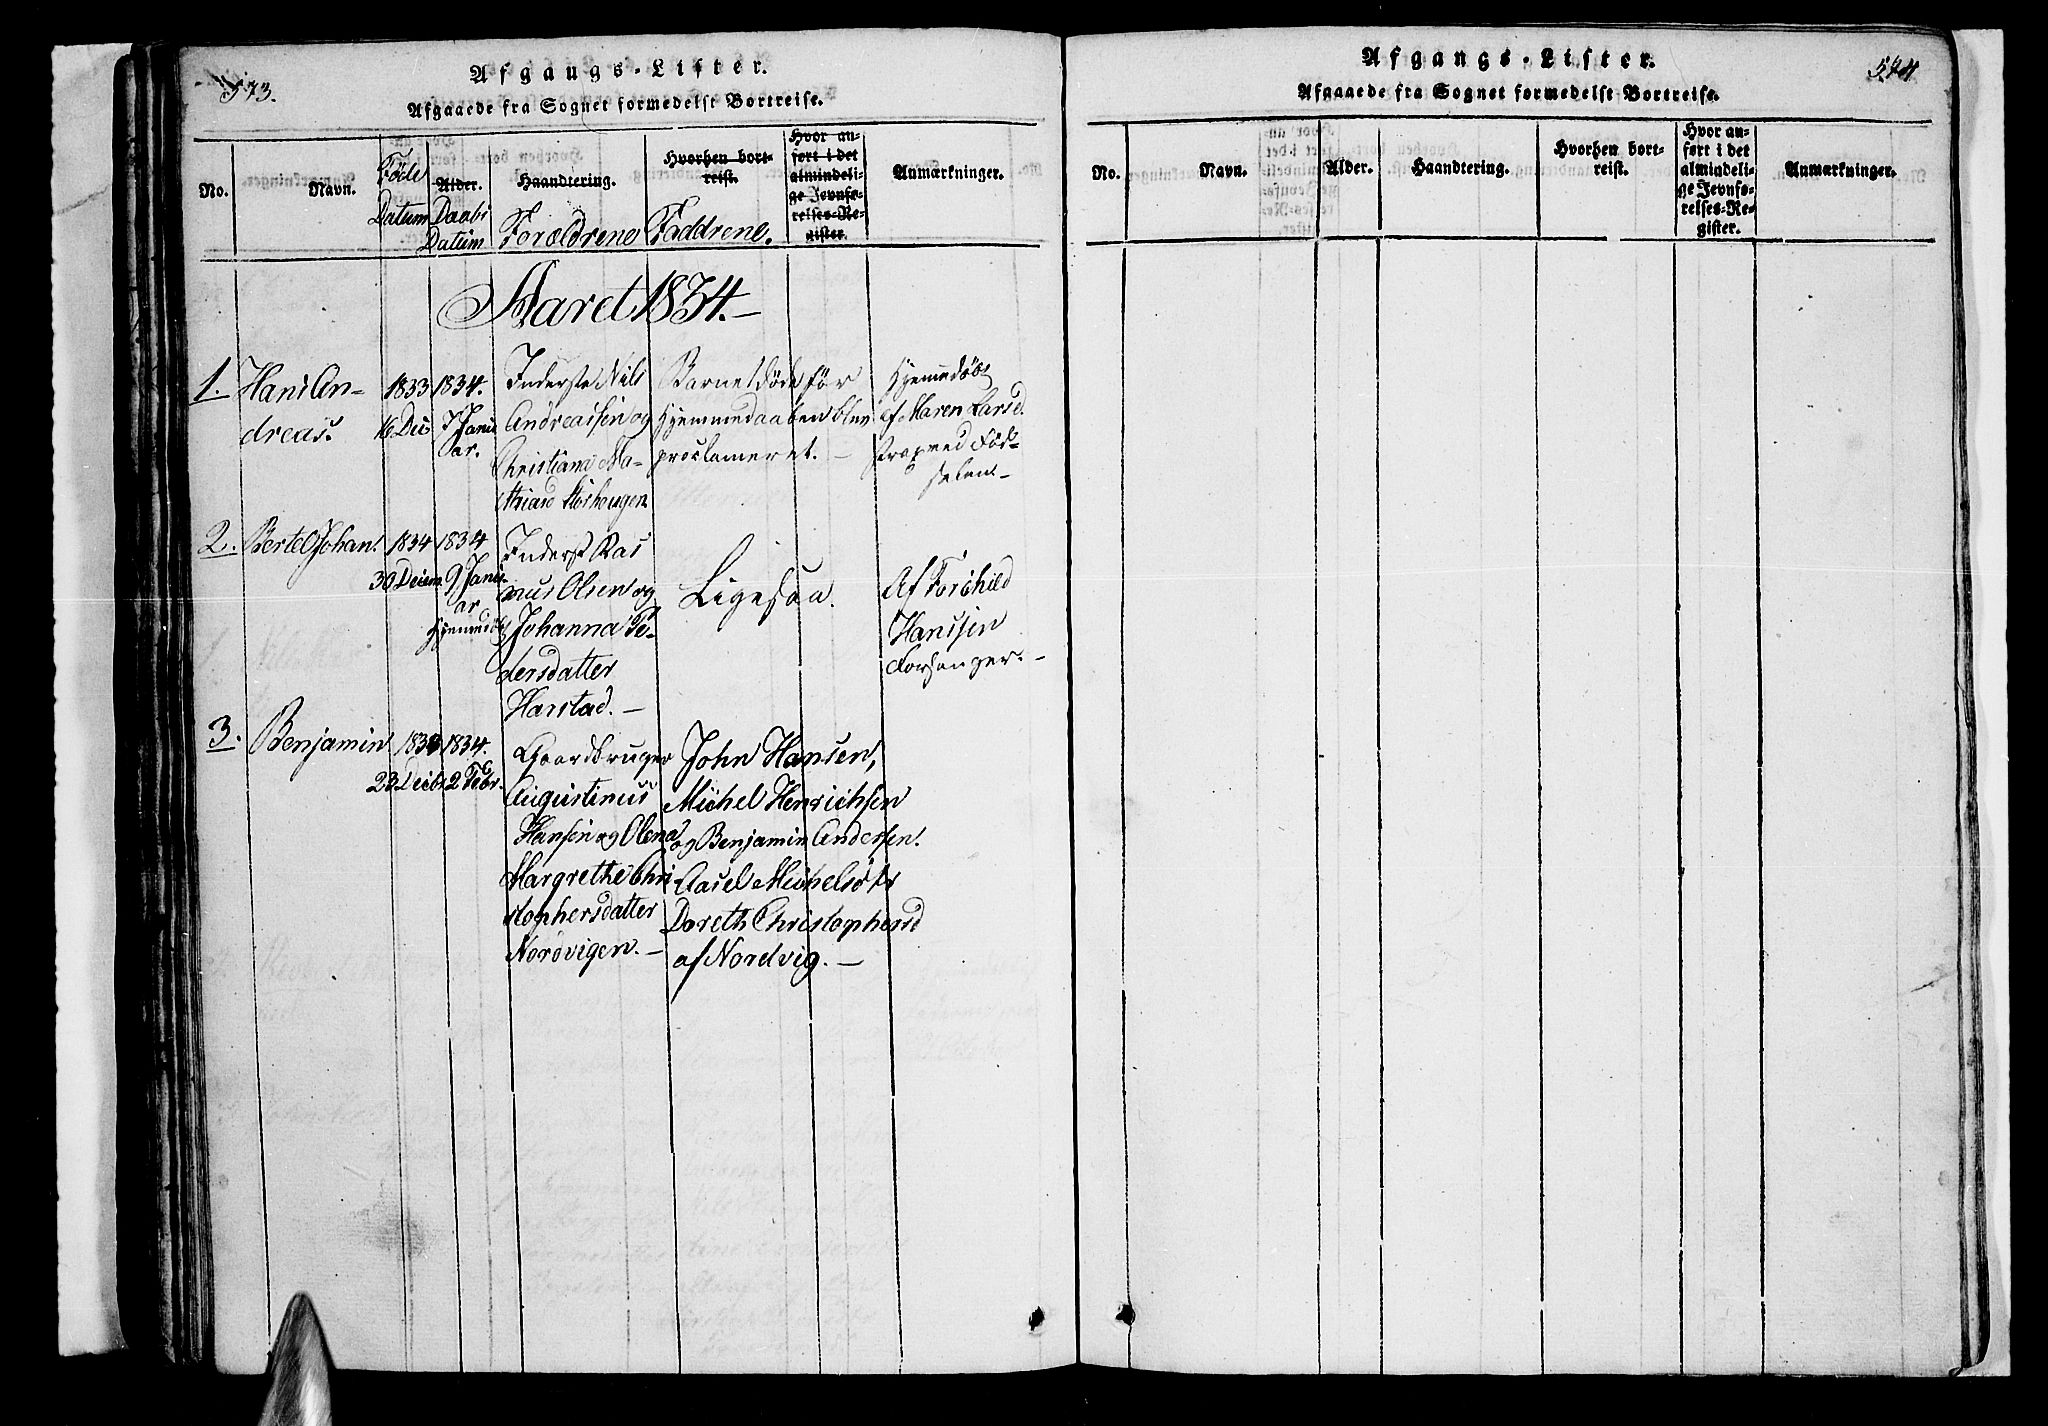 573.
Afgangs-Lister.
Afgaaede fra Sognet formedelst Bortreise.
No.
Navn.
Föde
Datum
Alder.
Daabs
Datum
Haandtering.
Forældrene
Hvorhen bort-
reist.
Faddrene.
Hvor an-
ført i det
almindeli-
ge Jevnfø-
relses-Re-
gister.
Anmærkninger.
Aaret 1834.-
1.
Hans An-
dreas.
1833
16 Dec
1834.
7 Janu
ar.
Inderste Nils
Andreassen og
Christiana Ma-
thiasd
Barnet döde för
Hjemmedaaben blev
proclameret. -
Hjemmedöbt
af Maren Larsd.
strax ved Föd-
selen -
2.
Bertel Johan.
1834
30 Decem
1834
9 Janu-
ar
Hjemmedöbt
Inderst Ras
mus Olsen og
Johanna Pe-
dersdatter
Harstad. -
Ligesaa.
Af Torchild
Hanssen
-
3.
Benjamin
1833
23 Decbr
1834.
2 Febr.
Gaardbruger
Augustinus
Hansen og Olena
Margrethe Chri
stophersdatter
Nordvigen. -
John Hansen,
Michel Henrichsen
og Benjamin Anderssen.
Aasel Michelsdtr
Doreth Christophersd
af Nordvig. -
574
Afgangs-Lister.
Afgaaede fra Sognet formedelst Bortreise.
No.
Navn.
Alder.
Haandtering.
Hvorhen bort-
reist.
Hvor an-
ført i det
almindeli-
ge Jevnfø-
relses-Re-
gister.
Anmærkninger.